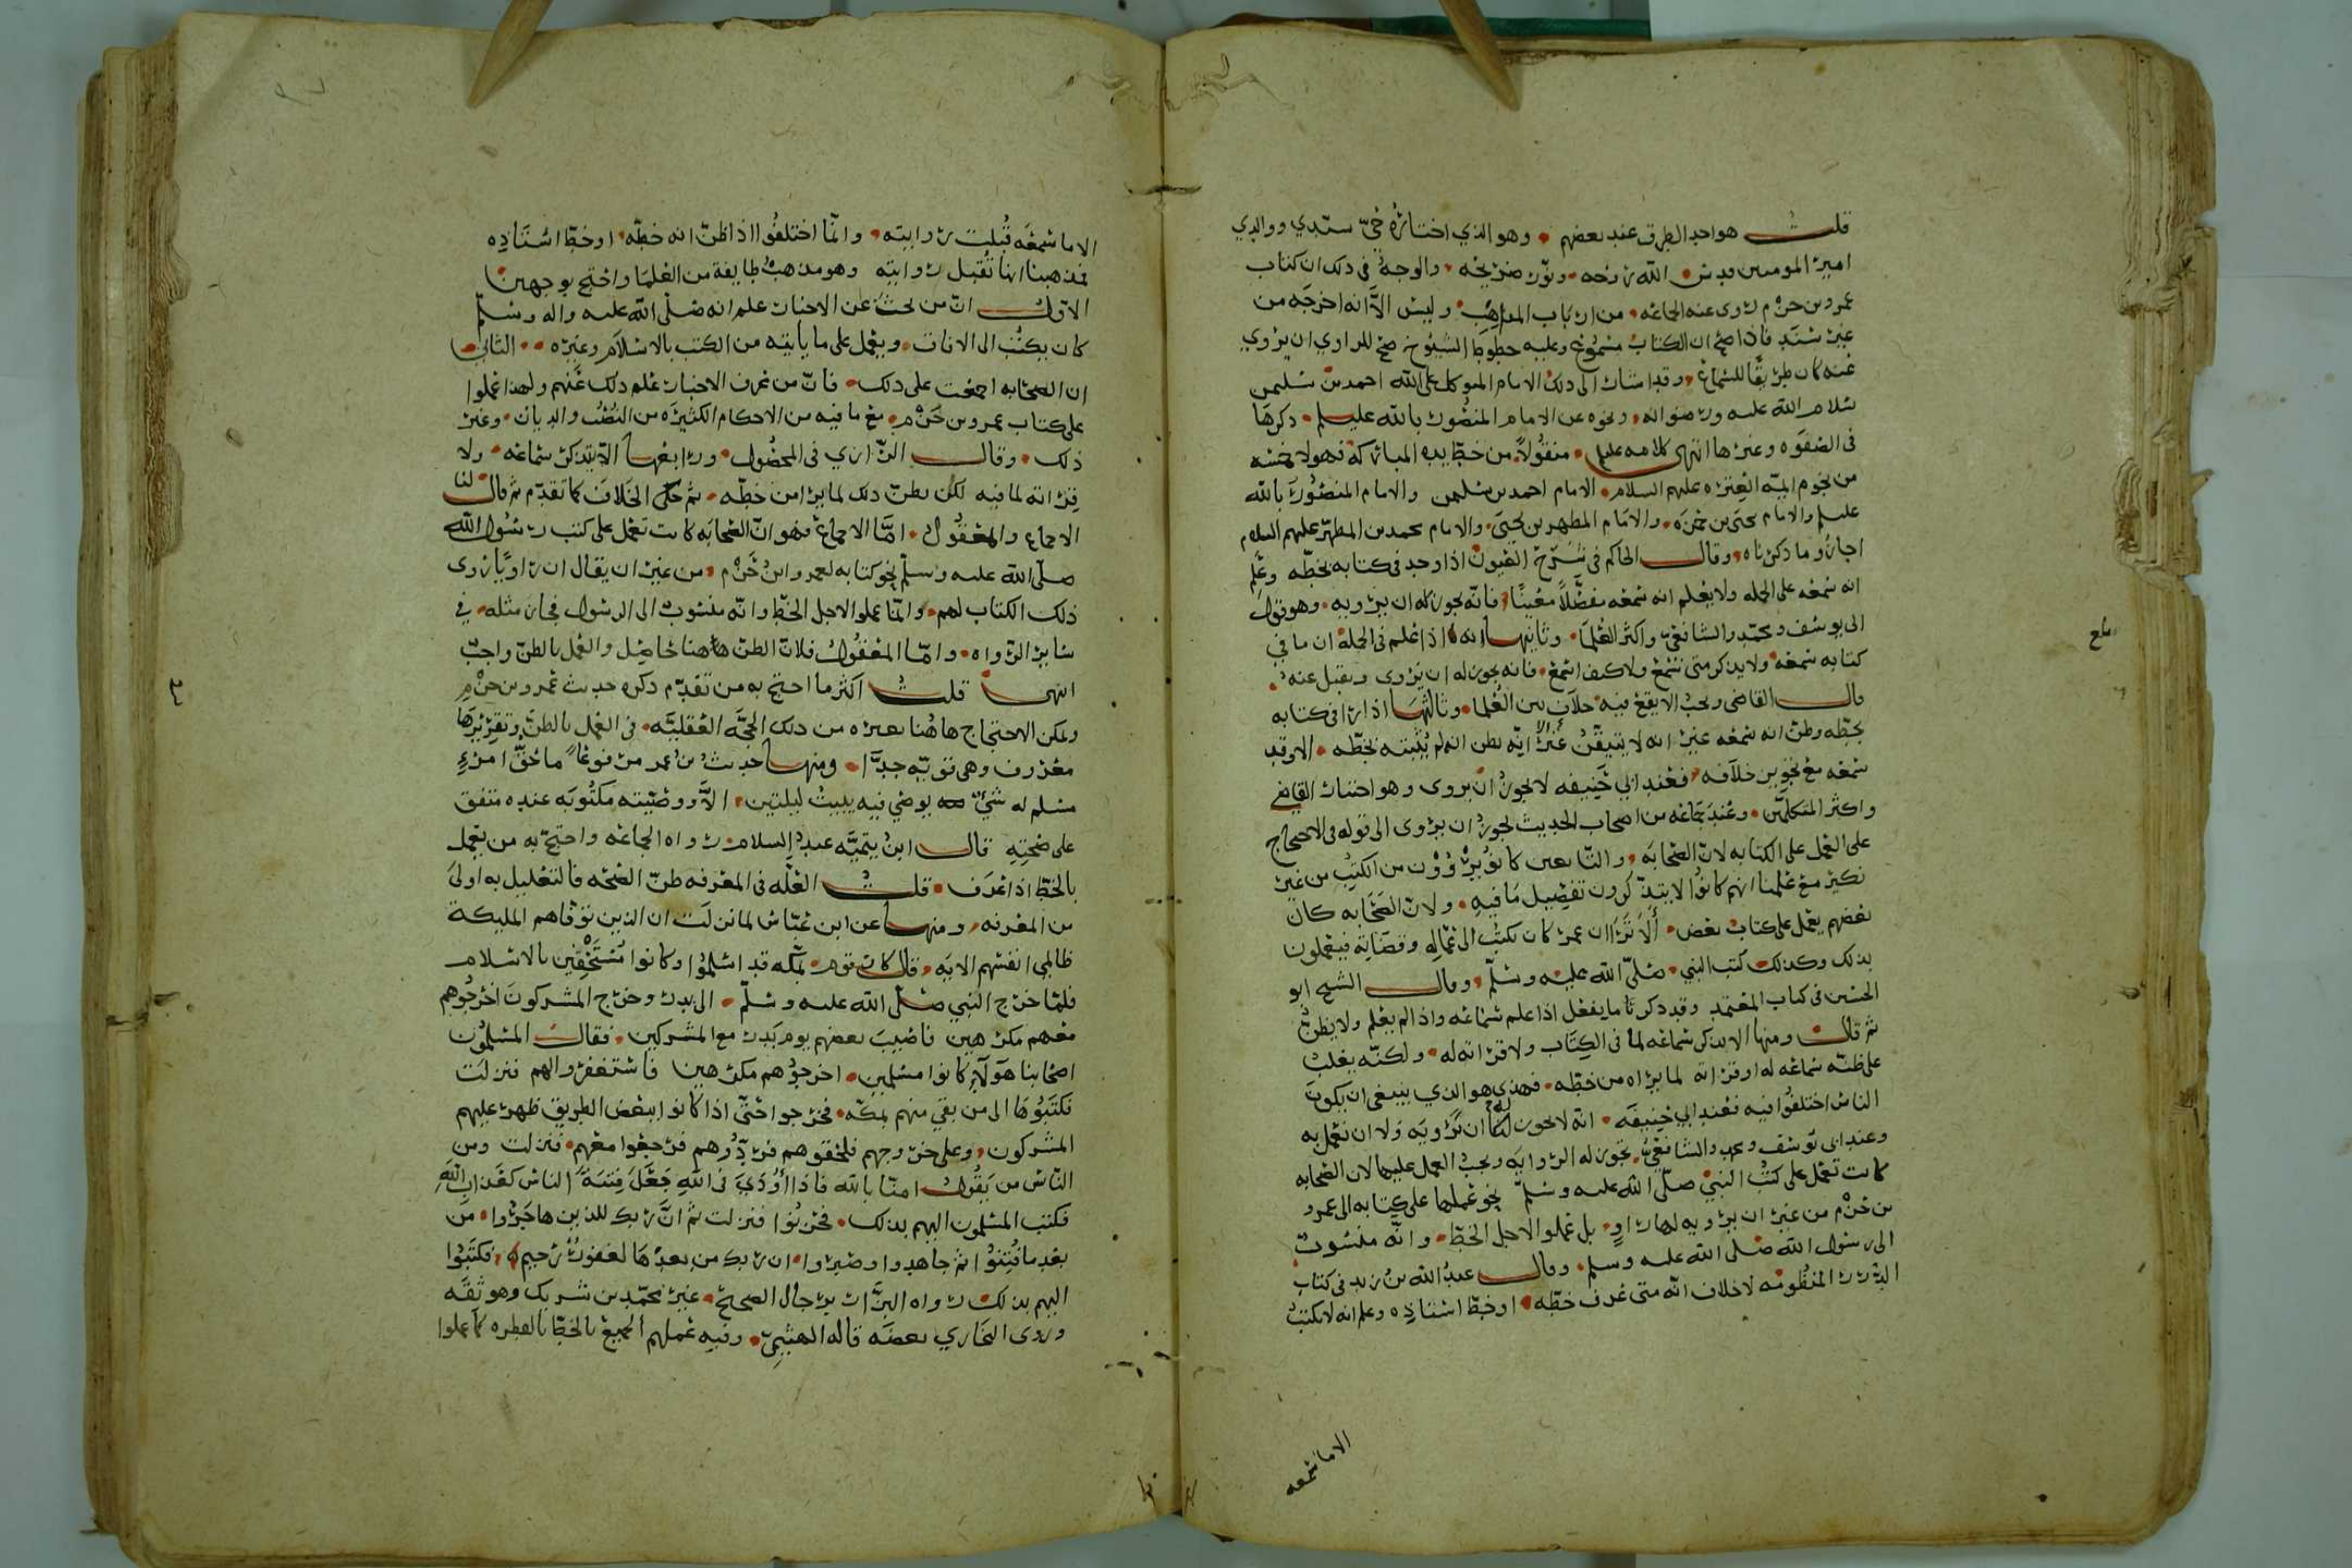 قلت هو احد الطرق عند بعضهم وهو الذي اختاره حي سيدي ووالدي
امير المومنين قدس الله روحه ونور ضريحه والوجه في ذلك ان كتاب
عمرو بن حزم روى عنه الجماعه من ارباب المذاهب وليس الا انه اخرجه من
غير سند فاذا صح ان الكتاب مسموع وعليه خطوط الشيوخ صح للراوي ان يروي
عنه كان طريقا للسماع وقد اشار الى ذلك الامام المتوكل على الله احمد بن سليمن
سلام الله عليه ورضوانه ونحوه عن الامام المنصور بالله عليلم ذكرها
في الصفوه وغيرها انتهى كلامه عليلم منقولا من خط يده المباركه فهولا خمسه
من نجوم ايمة العتره عليهم السلام الامام احمد بن سليمن والامام المنصور بالله
عليلم والامام يحيى بن حمزه والامام المطهر بن يحيى والامام محمد بن المطهر عليهم السلام
اجازوا ما ذكرناه وقال الحاكم في شرح العيون اذا وجد في كتابه بخطه وعلم
انه سمعه على الجمله ولا يعلم انه سمعه مفصلا معينا فانه يجوز له ان يرويه وهو قول
ابي يوسف ومحمد والشافعي واكثر العلما وثانيها انه اذا علم في الجملة ان ما في
كتابه سمعه ولا يذكر متى سمع ولا كيف اسمع فانه يجوز له ان يروى ويقبل عنه
قال القاضي ويجب الا يقع فيه خلاف بين العلما وثالثها اذا راى في كتابه
بخطه وظن انه سمعه غير انه لا يتيقن غير انه يظن انه لم يثبته بخطه الا وقد
سمعه مع تجويز خلافه فعند ابي حنيفه لا يجوز ان يروى وهو اختيار القاضي
واكثر المتكلمين وعند جماعه من اصحاب الحديث يجوز ان يروى الى قوله في الاحتجاج
على العمل على الكتابه لان الصحابه والتابعين كانوا يروون من الكتب من غير
نكير مع علمنا انهم كانوا لا يتذكرون تفصيل ما فيه ولان الصحابه كان
بعضهم يعمل على كتاب بعض الا ترا ان عمر كان يكتب الى عماله وقضاته فيعملون
بذلك وكذلك كتب النبي صلى الله عليه وسلم وقال الشيخ ابو
الحسين في كتاب المعتمد وقد ذكر ما يفعل اذا علم سماعه واذا لم يعلم ولا يظن
ثم قال ومنها الا يذكر سماعه لما في الكتاب ولا قراته له ولكنه يغلب
على ظنه سماعه له او قراته لما يراه من خطه فهذي هو الذي ينبغي ان يكون
الناس اختلفوا فيه فعند ابي حنيفه انه لا يجوز له ان يرويه ولا ان يعمل به
وعند ابي يوسف ومحمد والشافعي يجوز له الروايه ويجب العمل عليها لان الصحابه
كانت تعمل على كتب النبي صلى الله عليه وسلم نحو عملها على كتابه الى عمرو
بن حزم من غير ان يرويه لها راو بل عملوا لاجل الخط وانه منسوب
الى رسول الله صلى الله عليه وسلم وقال عبد الله بن زيد في كتاب
الدرر المنظومه لا خلاف انه متى عرف خطه او خط استاذه وعلم انه لا يكتب
الا ما سمعه
الا ما سمعه قبلت روايته وانما اختلفوا اذا ظن انه خطه او خط استاذه
فمذهبنا انها تقبل روايته وهو مذهب طايفة من العلما واحتج بوجهين
الاول ان من بحث عن الاخبار علم انه صلى الله عليه واله وسلم
كان يكتب الى الافاق ويعمل على ما ياتيه من الكتب بالاسلام وغيره الثاني
ان الصحابه اجمعت على ذلك فان من عرف الاخبار علم ذلك عنهم ولهذا عملوا
على كتاب عمرو بن حزم مع ما فيه من الاحكام الكثيره من النصب والديات وغير
ذلك وقال الرازي في المحصول ورابعها الا يتذكر سماعه ولا
قراته لما فيه لكن يظن ذلك لما يرا من خطه ثم حكى الخلاف كما تقدم ثم قال لنا
الاجماع والمعقول اما الاجماع فهو ان الصحابه كانت تعمل على كتب رسول الله
صلى الله عليه وسلم نحو كتابه لعمرو ابن حزم من غير ان يقال ان راويا روى
ذلك الكتاب لهم وانما عملوا لاجل الخط وانه منسوب الى الرسول فجاز مثله في
ساير الرواه واما المعقول فلان الظن هاهنا حاصل والعمل بالظن واجب
انتهى قلت اكثر ما احتج به من تقدم ذكره حديث عمرو بن حزم
ويمكن الاحتجاج هاهنا بغيره من ذلك الحجه العقليه في العمل بالظن وتقريرها
معروف وهي قويه جدا ومنها حديث بن عمر مرفوعا ما حق امرئ
مسلم له شئ يوصي فيه يبيت ليلتين الا ووصيته مكتوبه عنده متفق
على صحته قال ابن تيميه عبد السلام رواه الجماعه واحتج به من يعمل
بالخط اذا عرف قلت العله في المعرفه ظن الصحه فالتعليل به اولى
من المعرفه ومنها عن ابن عباس لما نزلت ان الذين توفاهم المليكة
ظالمي انفسهم الايه قال كان قوم بمكه قد اسلموا وكانوا مستخفين بالاسلام
فلما خرج النبي صلى الله عليه وسلم الى بدر وخرج المشركون اخرجوهم
معهم مكرهين فاصيب بعضهم يوم بدر مع المشركين فقال المسلمون
اصحابنا هولا كانوا مسلمين اخرجوهم مكرهين فاستغفروا لهم فنزلت
فكتبوها الى من بقي منهم بمكه فخرجوا حتى اذا كانوا ببعض الطريق ظهر عليهم
المشركون وعلى خروجهم فلحقوهم فردوهم فرجعوا معهم فنزلت ومن
الناس من يقول امنا بالله فاذا اوذي في الله جعل فتنة الناس كعذاب الله
فكتب المسلمون اليهم بذلك فحزنوا فنزلت ثم ان ربك للذين هاجروا من
بعد ما فتنوا ثم جاهدوا وصبروا ان ربك من بعدها لغفور رحيم فكتبوا
اليهم بذلك رواه البزار برجال الصحيح غير محمد بن شريك وهو ثقه
وروى البخاري بعضه قاله الهيثمي وفيه عملهم الجميع بالخط بالفطره كما عملوا